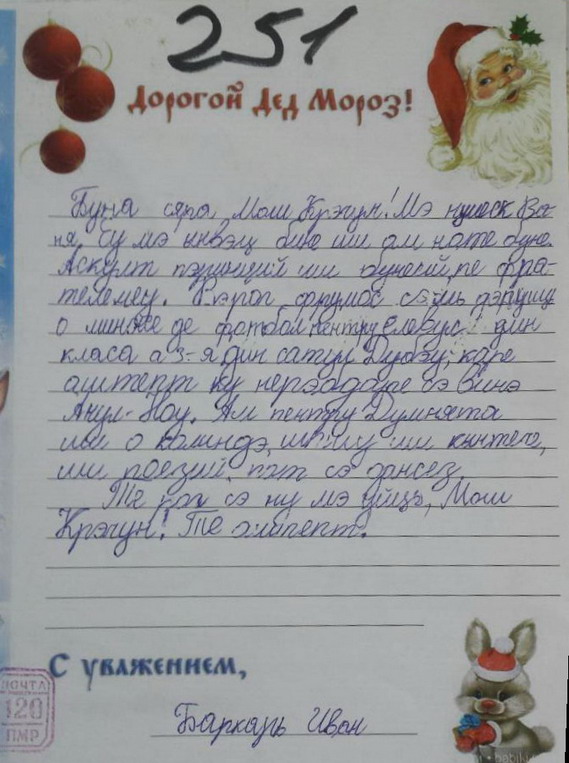 251
Дорогой Дед Мороз!
Буна сяра Мош Крэчун! Мэ нумеск Ва-
ня. Еу мэ ынвэц бине ши ам нате буне.
Аскулт пэринций ши бунеий, пе фра-
телемеу. Те рог фрумос сэ-мь дэруешь
о минӂе де фотбал пентру елевул дин
класа а 3-а дин сатул Дубэу, каре
аштепт ку нерэбдаре сэ винэ
Анул-Ноу. Ам пентру Думнята
ши о колиндэ, ши ши кынтече,
ши поезий, пот сэ дансез
Те рог сэ ну мэ уйць, Мош
Крэчун! Те аштепт.
С уважением,
Баркарь Иван
ПОЧТА
120
ПМР